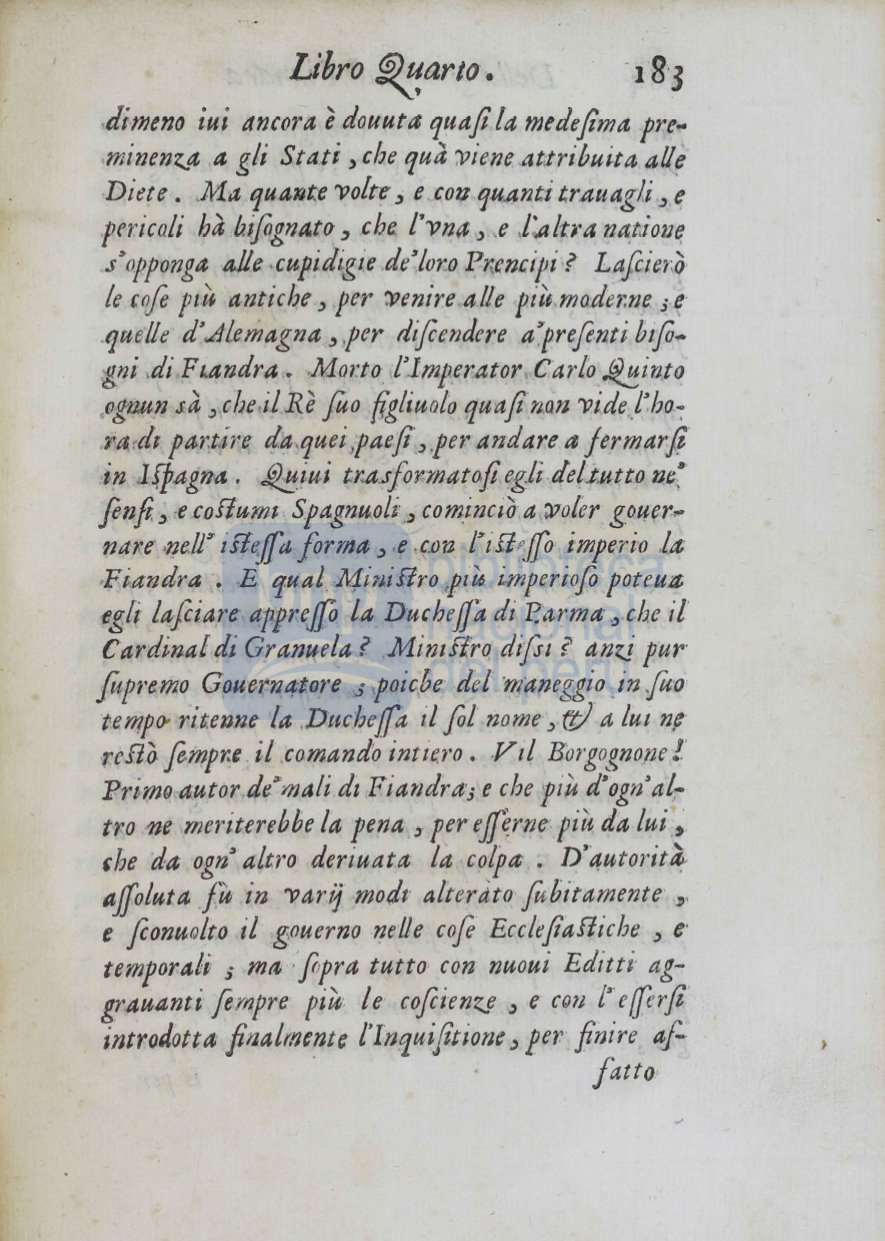 Libro Quarto. 183
dimeno iui ancora è douuta quaſi la medeſima pre-
minenza a gli Stati, che quà viene attribuita alle
Diete. Ma quante volte, e con quanti trauagli, e
pericoli hà biſognato, che l'vna, e l'altra natione
s'opponga alle cupidigie de' loro Prencipi? Laſcierò
le coſe più antiche, per venire alle più moderne; e
quelle d'Alemagna, per diſcendere a' preſenti biſo-
gni di Fiandra. Morto l'Imperator Carlo Quinto
ognun sà, che il Rè ſuo figliuolo quaſi non vide l'ho-
ra di partire da quei paeſi, per andare a fermarſi
in Iſpagna. Quiui trasformatoſi egli del tutto ne'
ſenſi, e coſtumi Spagnuoli, cominciò a voler gouer-
nare nell' iſteſſa forma, e con l'iſteſſo imperio la
Fiandra. E qual Miniſtro più imperioſo poteua
egli laſciare appreſſo la Ducheſſa di Parma, che il
Cardinal di Granuela? Miniſtro diſsi? anzi pur
ſupremo Gouernatore; poiche del maneggio in ſuo
tempo ritenne la Ducheſſa il ſol nome, & a lui ne
reſtò ſempre il comando intiero. Vil Borgognone!
Primo autor de' mali di Fiandra; e che più d'ogn' al-
tro ne meriterebbe la pena, per eſſerne più da lui,
che da ogn' altro deriuata la colpa. D'autorità
aſſoluta fù in varij modi alteràto ſubitamente,
e ſconuolto il gouerno nelle coſe Eccleſiaſtiche, e
temporali; ma ſopra tutto con nuoui Editti ag-
grauanti ſempre più le coſcienze, e con l'eſſerſi
introdotta finalmente l'Inquiſitione, per finire af-
fatto